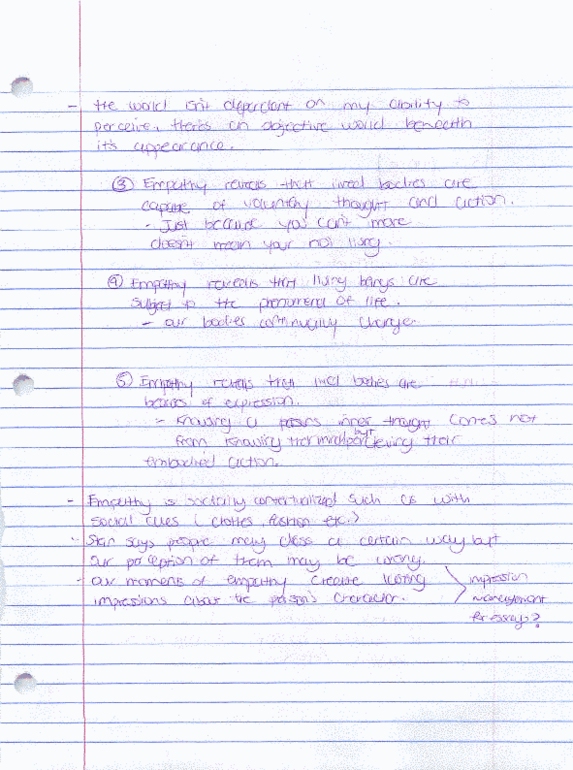 - the world isn't dependant on my ability to
perceive, there's an objective world beneath
it's appearance.
③ Empathy reveals that lived bodies are
capable of voluntary thought and action.
- Just because you can't move
doesn't mean your not living.
④ Empathy reveals that living beings are
subject to the phenomena of life.
- our bodies continually change.
⑤ Empathy reveals that lived bodies are
bearers of expression.
- Knowing a persons inner thought comes not
from knowing their mind but their
embodied action.
- Empathy is socially contextualized such as with
social cues (clothes, fashion etc.)
- Stein says people may dress a certain way but
our perception of them may be wrong.
- our moments of empathy create lasting
impressions about the person's character.
impression
management
for essay?